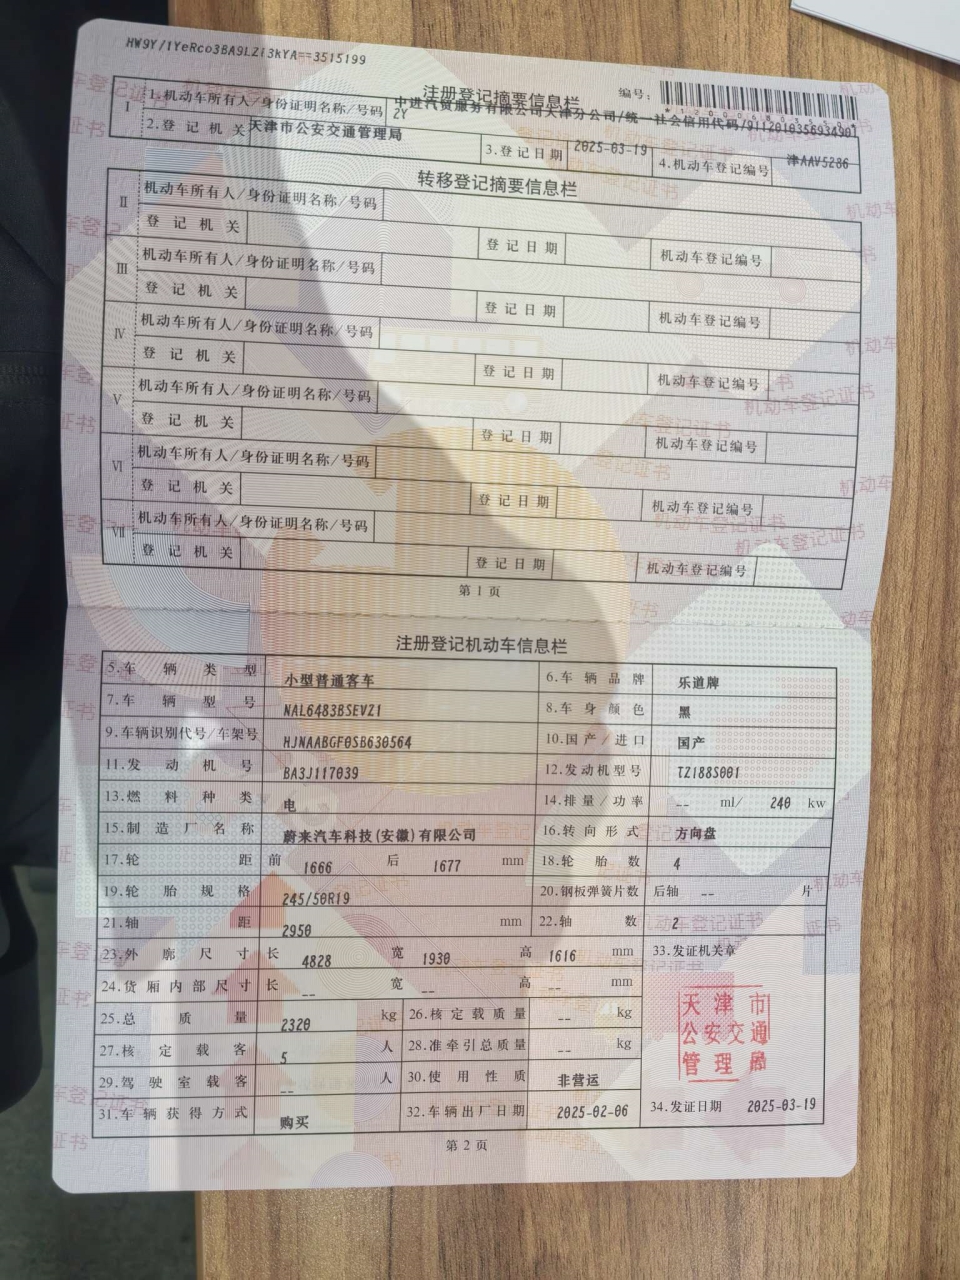 HW9Y/1YeRco3BA9LZi3kYA==3515199
注册登记摘要信息栏
编号:
I
1.机动车所有人/身份证明名称/号码
中进汽贸服务有限公司天津分公司/统一社会信用代码/
2.登记机关 天津市公安交通管理局 3.登记日期 2025-03-19 4.机动车登记编号 津AAV5286
转移登记摘要信息栏
II 机动车所有人/身份证明名称/号码
登记机关 登记日期 机动车登记编号
III 机动车所有人/身份证明名称/号码
登记机关 登记日期 机动车登记编号
IV 机动车所有人/身份证明名称/号码
登记机关 登记日期 机动车登记编号
V 机动车所有人/身份证明名称/号码
登记机关 登记日期 机动车登记编号
VI 机动车所有人/身份证明名称/号码
登记机关 登记日期 机动车登记编号
VII 机动车所有人/身份证明名称/号码
登记机关 登记日期 机动车登记编号
第1页
注册登记机动车信息栏
5.车辆类型 小型普通客车 6.车辆品牌 乐道牌
7.车辆型号 NAL6483BSEVZ1 8.车身颜色 黑
9.车辆识别代号/车架号 HJNAABGF0SB630564 10.国产/进口 国产
11.发动机号 BA3J117039 12.发动机型号 TZ188S001
13.燃料种类 电 14.排量/功率 -- ml/ 240 kw
15.制造厂名称 蔚来汽车科技(安徽)有限公司 16.转向形式 方向盘
17.轮距 前 1666 后 1677 mm 18.轮胎数 4
19.轮胎规格 245/50R19 20.钢板弹簧片数 后轴 -- 片
21.轴距 2950 mm 22.轴数 2
23.外廓尺寸 长 4828 宽 1930 高 1616 mm 33.发证机关章
24.货厢内部尺寸 长 -- 宽 -- 高 -- mm
25.总质量 2320 kg 26.核定载质量 -- kg
27.核定载客 5 人 28.准牵引总质量 -- kg
天津市
公安交通
管理局
29.驾驶室载客 -- 人 30.使用性质 非营运
31.车辆获得方式 购买 32.车辆出厂日期 2025-02-06 34.发证日期 2025-03-19
第2页